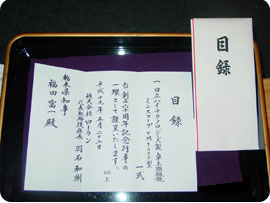 目録
一 日立ハイテクノロジーズ製 卓上顕微鏡
ミニスコープTM-1000型
一式
右、創立六十周年記念行事の
一環として贈呈いたします。
以上
平成十九年五月二十二日
株式会社ローラン
代表取締役社長 羽石和樹
栃木県知事
福田富一殿
目録